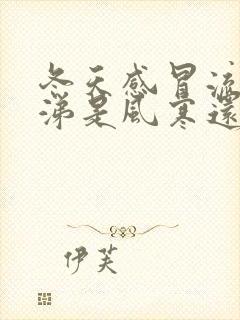 冬天感冒流
涕是風寒還
伊芙